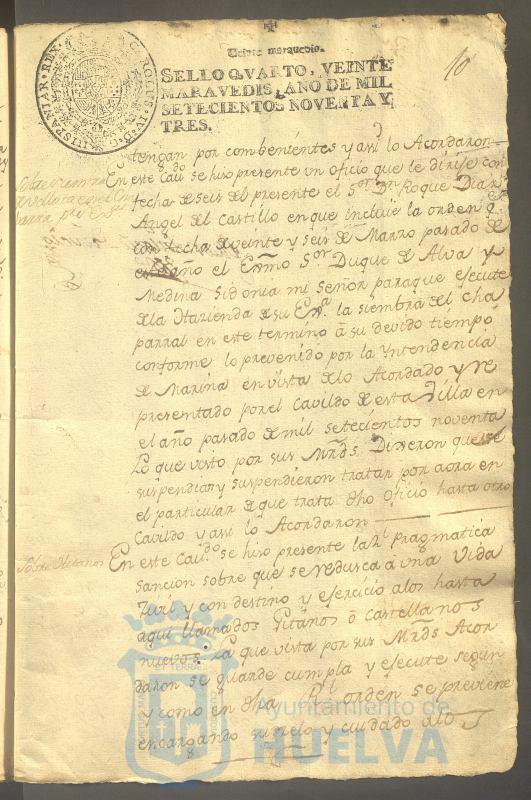 Veinte maravedis.
SELLO QVARTO, VEINTE
MARAVEDIS, AÑO DE MIL
SETECIENTOS NOVENTA Y
TRES.
10
tengan por combenientes y asi lo Acordaron
En este Cavdo. se hiso presente un oficio que le dirije con
fecha de seis del presente el Sor. Dn. Roque Diaz
Angel del Castillo en que incluie la orden q.
con fecha de veinte y seis de Marzo pasado de
año el Exmo Sor. Duque de Alva y
Medina Sidonia mi Señor para que ejecute
de la Hazienda de su Exa. la siembra del cha
parral en este termino à su devido tiempo
conforme lo prevenido por la Yntendencia
de Marina en vista de lo Acordado y re
presentado por el Cavildo de esta Villa en
el año pasado de mil setecientos noventa
Lo que visto por sus Mrds. Dixeron que se
suspendia y suspendieron tratar por aora en
el particular de que trata dho oficio hasta otro
Cavildo y asi lo Acordaron
Sobre Gitanos
En este Cavdo. se hiso presente la Rl. Pragmatica
Sancion sobre que se redusca à una vida
Zivil y con destino y ejercicio a los hasta
aqui llamados Gitanos ò castellanos
nuevos. Lo que vista por sus Mrds. Acor
daron se guarde cumpla y ejecute segun
y como en dha Rl. orden se previene
encargando su zelo y cuidado a los
Ayuntamiento de
HUELVA